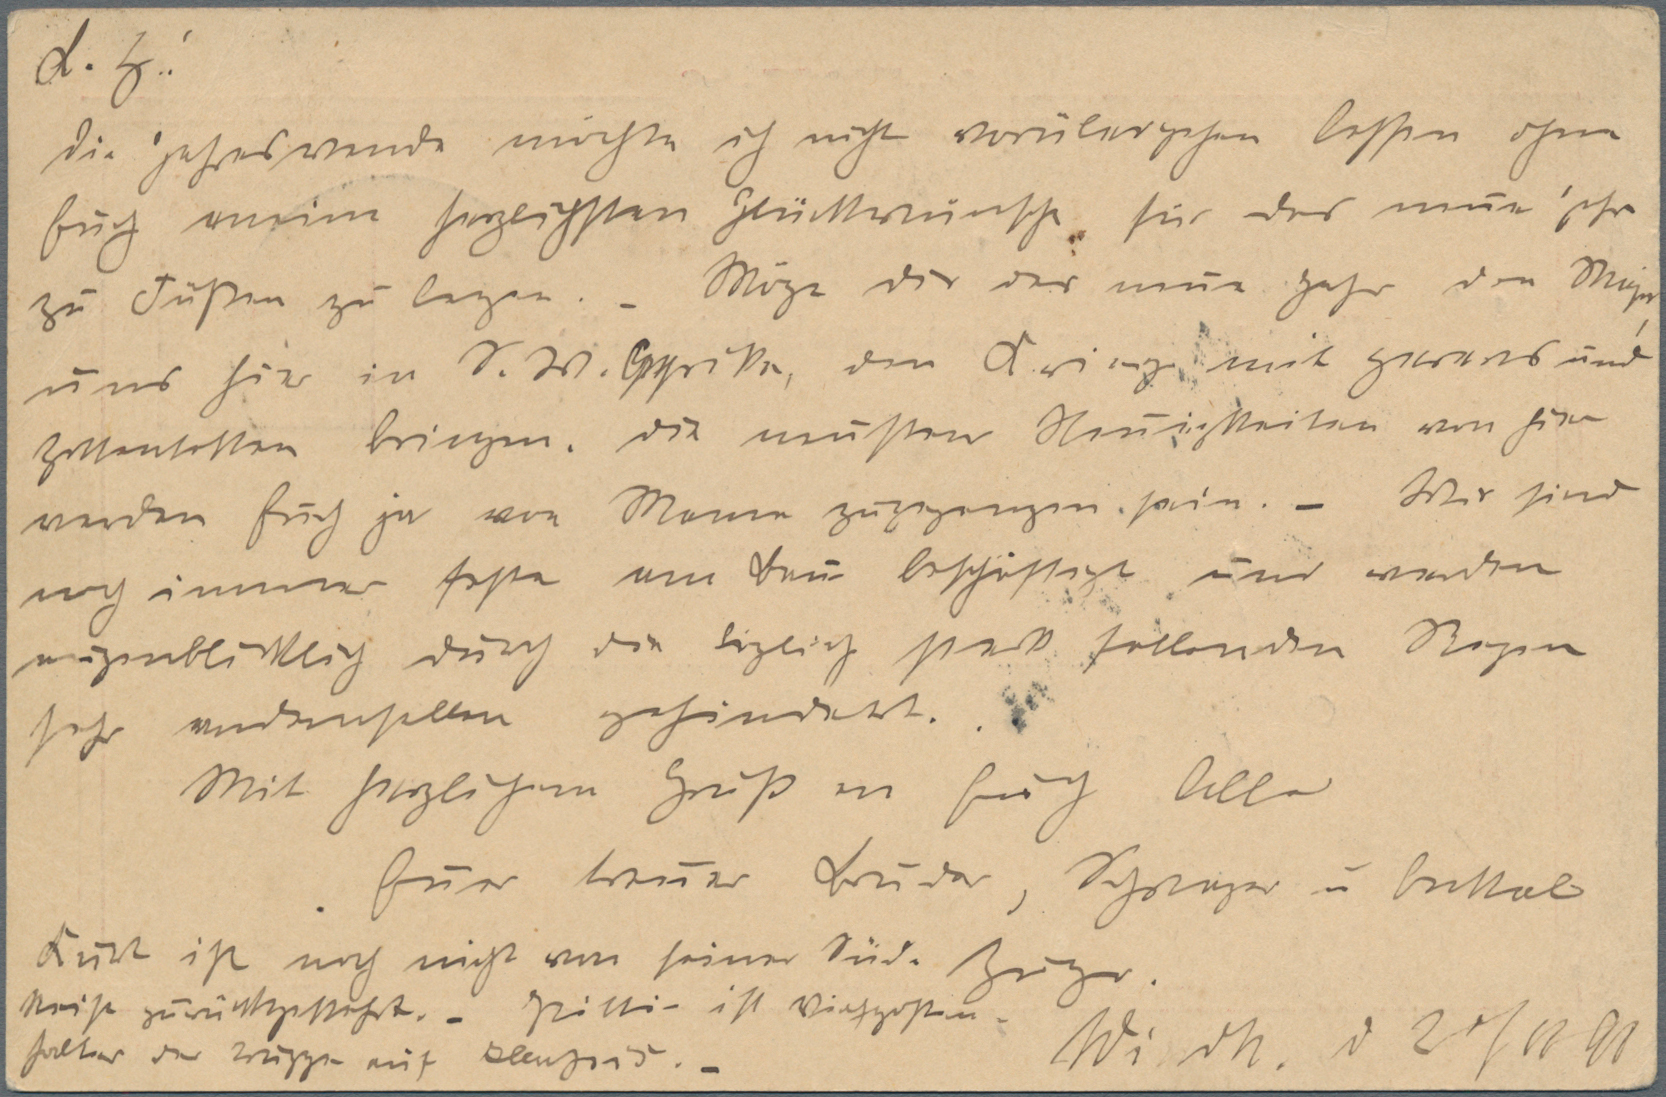 L. H.!
Die Jahreswende möchte ich nicht vorübergehen lassen ohne
Euch meine herzlichsten Glückwünsche für das neue Jahr
zu Füßen zu legen. - Möge dir das neue Jahr den Major,
uns hier in S. W. Afrika, den Krieg mit Hereros und
Hottentotten bringen. Die neusten Neuigkeiten von hier
werden Euch ja von Mama zugegangen sein. - Wir sind
noch immer feste am Bau beschäftigt und werden
augenblicklich durch die täglich stark fallenden Regen
sehr an demselben gehindert.
Mit herzlichem Gruß an Euch Alle
Euer treuer Bruder, Schwager u Onkel
Kurt ist noch nicht von seiner Süd-
Reise zurückgekehrt. - ist
halter der Truppe auf